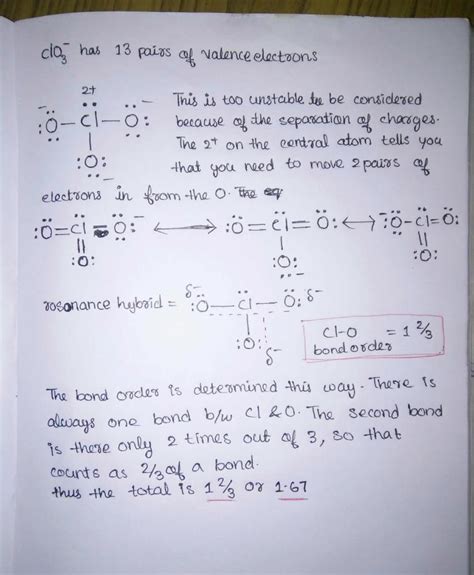 ClO₃⁻ has 13 pairs of valence electrons
2+
:Ö–Cl–Ö:
:O:
This is too unstable to be considered
because of the separation of charges.
The 2+ on the central atom tells you
that you need to move 2 pairs of
electrons in from the O. The eq
:Ö=Cl–Ö:⁻ ⟷ :Ö=Cl=Ö: ⟷ ⁻:Ö–Cl=Ö:
:O: :O: :O:
rosonance hybrid = δ⁻ :Ö–Cl–Ö: δ⁻
:O: δ⁻
Cl-O = 1 2/3
bond order
The bond order is determined this way. There is
always one bond b/w Cl & O. The second bond
is there only 2 times out of 3, so that
counts as 2/3 of a bond.
thus the total is 1 2/3 or 1.67